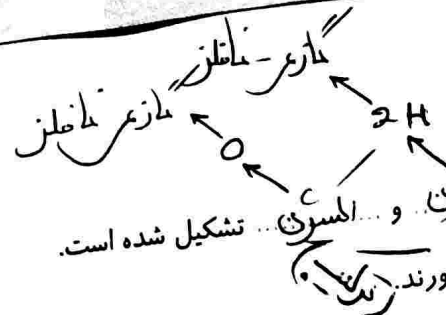 گازی - نافلز
گازی نافلز
2H
O
و اکسیژن تشکیل شده است.
ورند.